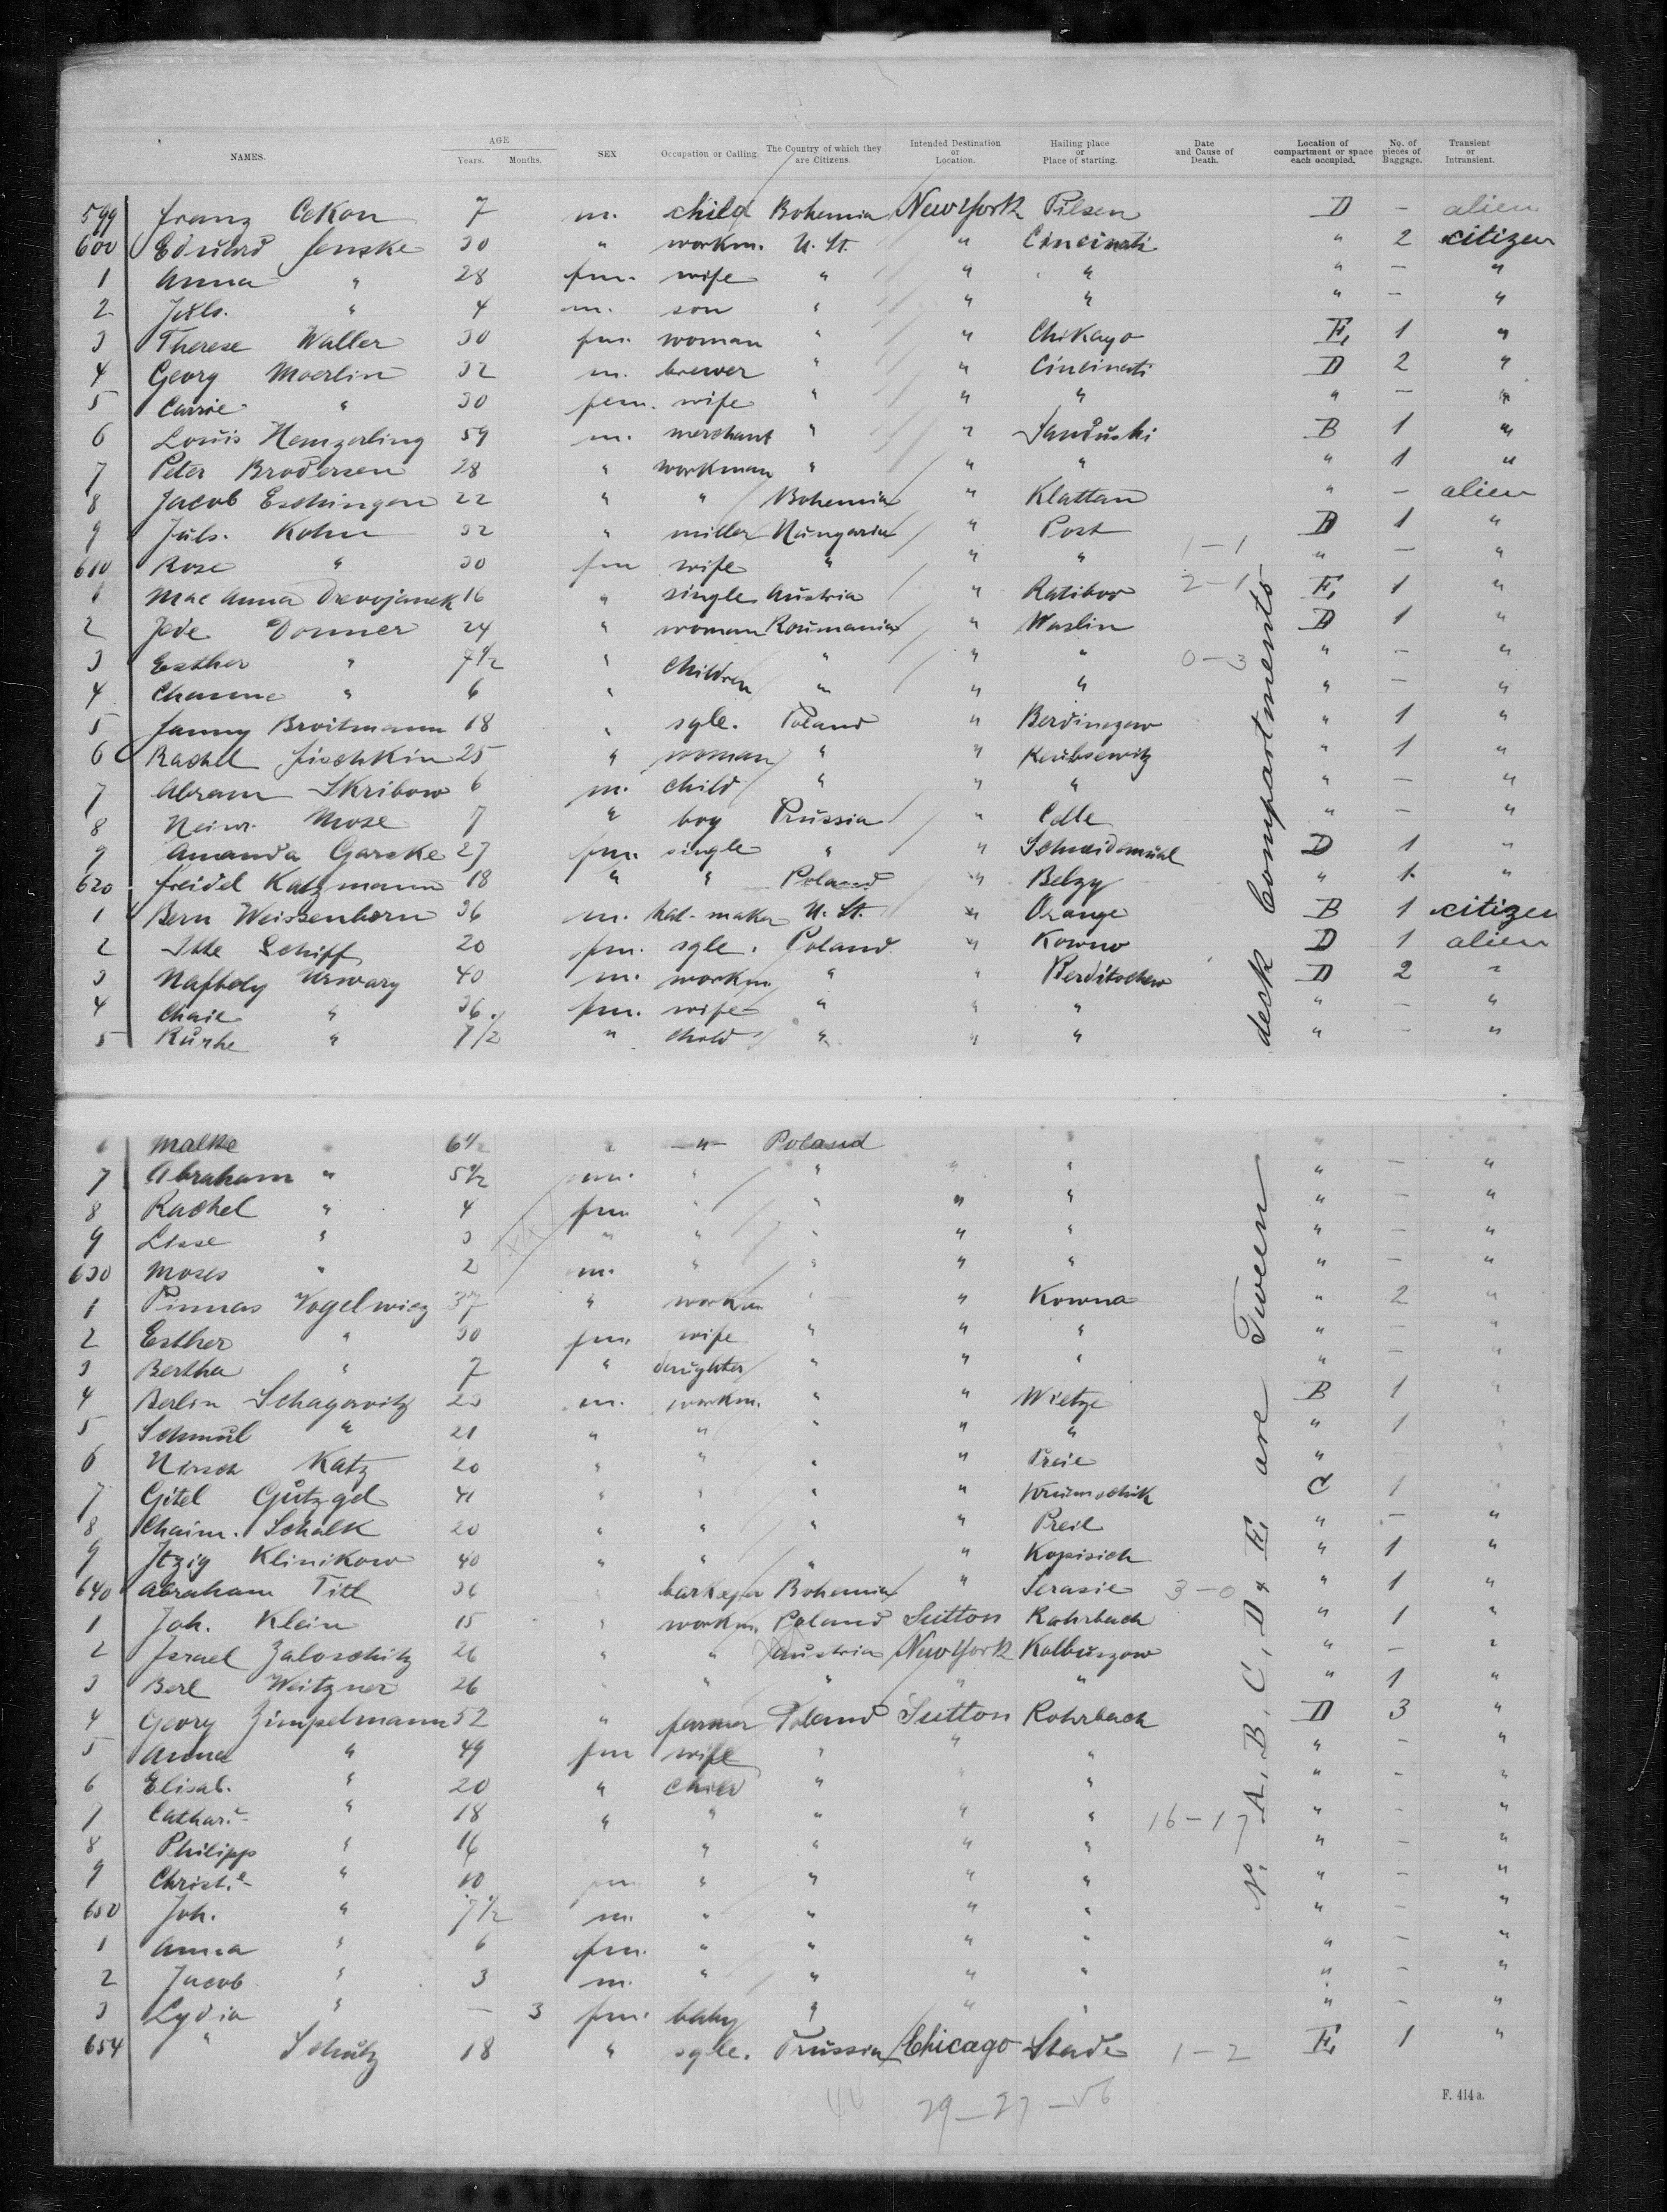 NAMES. AGE Years. Months. SEX Occupation or Calling. The Country of which they are Citizens. Intended Destination or Location. Hailing place or Place of starting. Date and Cause of Death. Location of compartment or space each occupied. No. of pieces of Baggage. Transient or Intransient.
599 Franz Cekon 7 m. child Bohemia New York Pilsen D – alien
600 Eduard Jenske 30 " workm. U. St. " Cincinati " 2 citizen
1 Anna " 28 fm. wife " " " " – "
2 Juls. " 4 m. son " " " " – "
3 Therese Waller 30 fm. woman " " Chikago E, 1 "
4 Georg Moerlin 32 m. brewer " " Cincinati D 2 "
5 Carrie " 30 fem. wife " " " " – "
6 Louis Hemzerling 59 m. merchant " " Sanduski B 1 "
7 Peter Brodersen 28 " workman " " " " 1 "
8 Jacob Eschingen 22 " " Bohemia " Klattau " – alien
9 Juls. Kohn 32 " miller Hungaria " Post D 1 "
610 Rose " 30 fm wife " " " 1–1 " – "
1 Mac Anna Drevojanek 16 " single Austria " Ratibor 2–1 E, 1 "
2 Jede Donner 24 " woman Roumania " Waslin D 1 "
3 Esther " 7 1/2 " children " " " 0–3 " – "
4 Channe " 6 " " " " " – "
5 Fanny Broitmann 18 " sgle. Poland " Berdinzew " 1 "
6 Rachel Fischkin 25 " woman " " " 1 "
7 Abram Skribow 6 m. child " " " " – "
8 Heinr. Mose 7 " boy Prussia " Celle " – "
9 Amanda Garske 27 fm. single " " Schneidemühl D 1 "
620 Freidel Katzmann 18 " " Poland " Belzy " 1 "
1 Bern Weissenborn 36 m. hat-maker U. St. " Orange B 1 citizen
2 Itte Schiff 20 fm. sgle. Poland " Kowno D 1 alien
3 Naftoly Urwary 40 m. workm. " " Berditschew D 2 "
4 Chaie " 36. fm. wife " " " " – "
5 Kurhe " 7 1/2 " child " " " " – "
6 Malke " 6 1/2 " –"– Poland " " "
7 Abraham " 5 1/2 m. " " " " " – "
8 Rachel " 4 fm " " " " " – "
9 Lisse " 3 " " " " " " – "
630 Moses " 2 m. " " " " " – "
1 Pinnas Vogelwiez 37 " workm. " " Kowna " 2 "
2 Esther " 30 fm. wife " " " " – "
3 Bertha " 7 " daughter " " " " – "
4 Berlin Schagowitz 23 m. workm. " " Wietze B 1 "
5 Schmul " 21 " " " " " " 1 "
6 Hirsch Katz 20 " " " " Preie " – "
7 Gitel Gutzgel 41 " " " " C 1 "
8 Chaim. Schalk 20 " " " " Preil " – "
9 Itzig Klinikow 40 " " " " Kopisich " 1 "
640 Abraham Titl 36 " barkeper Bohemia " Serasie 3–0 " 1 "
1 Joh. Klein 15 " workm. Poland Sutton Rohrbach " 1 "
2 Israel Zaloschitz 26 " " Austria New York Kolbuszow " – "
3 Berl Weitzner 26 " " " " " " 1 "
4 Georg Zimpelmann 52 " farmer Poland Sutton Rohrbach D 3 "
5 Anna " 49 fm wife " " " " – "
6 Elisab. " 20 " child " " " " – "
7 Cathar. " 18 " " " " " 16–17 " – "
8 Philipp " 14 " " " " " – "
9 Christ. " 10 fm " " " " " – "
650 Joh. " 7 1/2 m. " " " " " – "
1 Anna " 6 fm. " " " " " – "
2 Jacob " 3 m. " " " " " – "
3 Lydia " – 3 fm. baby " " " " – "
654 " Schutz 18 " sgle. Prussia Chicago Stade 1–2 E, 1 "
N. A, B, C, D & E, are Tween deck Compartments
44 29–27–56
F. 414 a.